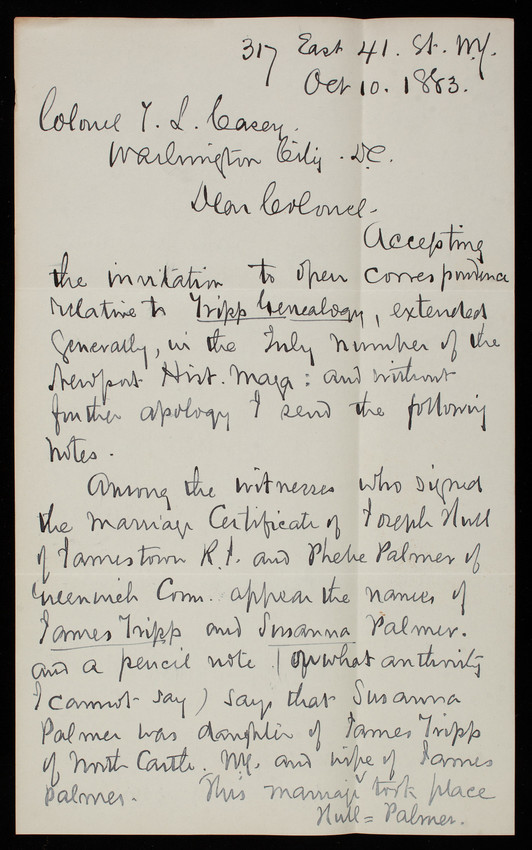 317 East 41. St. N.Y.
Oct 10. 1883.
Colonel T. L. Casey.
Washington City. D.C.
Dear Colonel-
Accepting
the invitation to open correspondence
relative to Tripp Genealogy, extended
generally, in the July number of the
Newport Hist. Maga: and without
further apology I send the following
notes.
Among the witnesses who signed
the marriage Certificate of Joseph Hull
of Jamestown R.I. and Phebe Palmer of
Greenwich Conn. appear the names of
James Tripp and Susanna Palmer.
and a pencil note (of what authority
I cannot say) says that Susanna
Palmer was daughter of James Tripp
of North Castle. N.Y. and wife of James
Palmer. This marriage took place
Hull = Palmer.